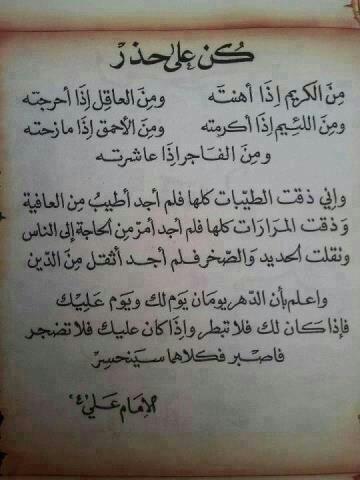 كُن على حذر
مِنَ الكريم إذَا أهنتَه ومنَ العاقِل إذَا أحرجته
ومنَ اللئيم إذَا أكرمته ومِنَ الأحمق إذَا مازحته
ومنَ الفاجر إذا عاشرته
وإني ذقت الطيّبات كلها فلم أجد أطيبُ من العافية
وَذقت المَرَارَات كلها فلم أجد أمرّ من الحاجة إلى الناس
ونقلت الحديد وَالصّخر فلم أجد أثقل مِنَ الدّين
واعلم بأن الدّهر يومَان يَوم لك ويَوم عَليْك
فإذَا كَان لك فلا تبطر وإذَا كان عليك فلا تضجر
فاصْبر فكلاهما سَينحسِرْ
الإمَام عَلي ع